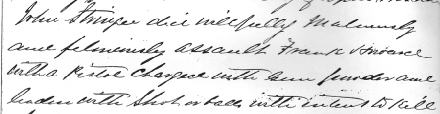 John Stringer did willfully Maliciously
and feloniously assault Frank
with a Pistol charged with Gun powder and
leaden with Shot or balls with intent to Kill